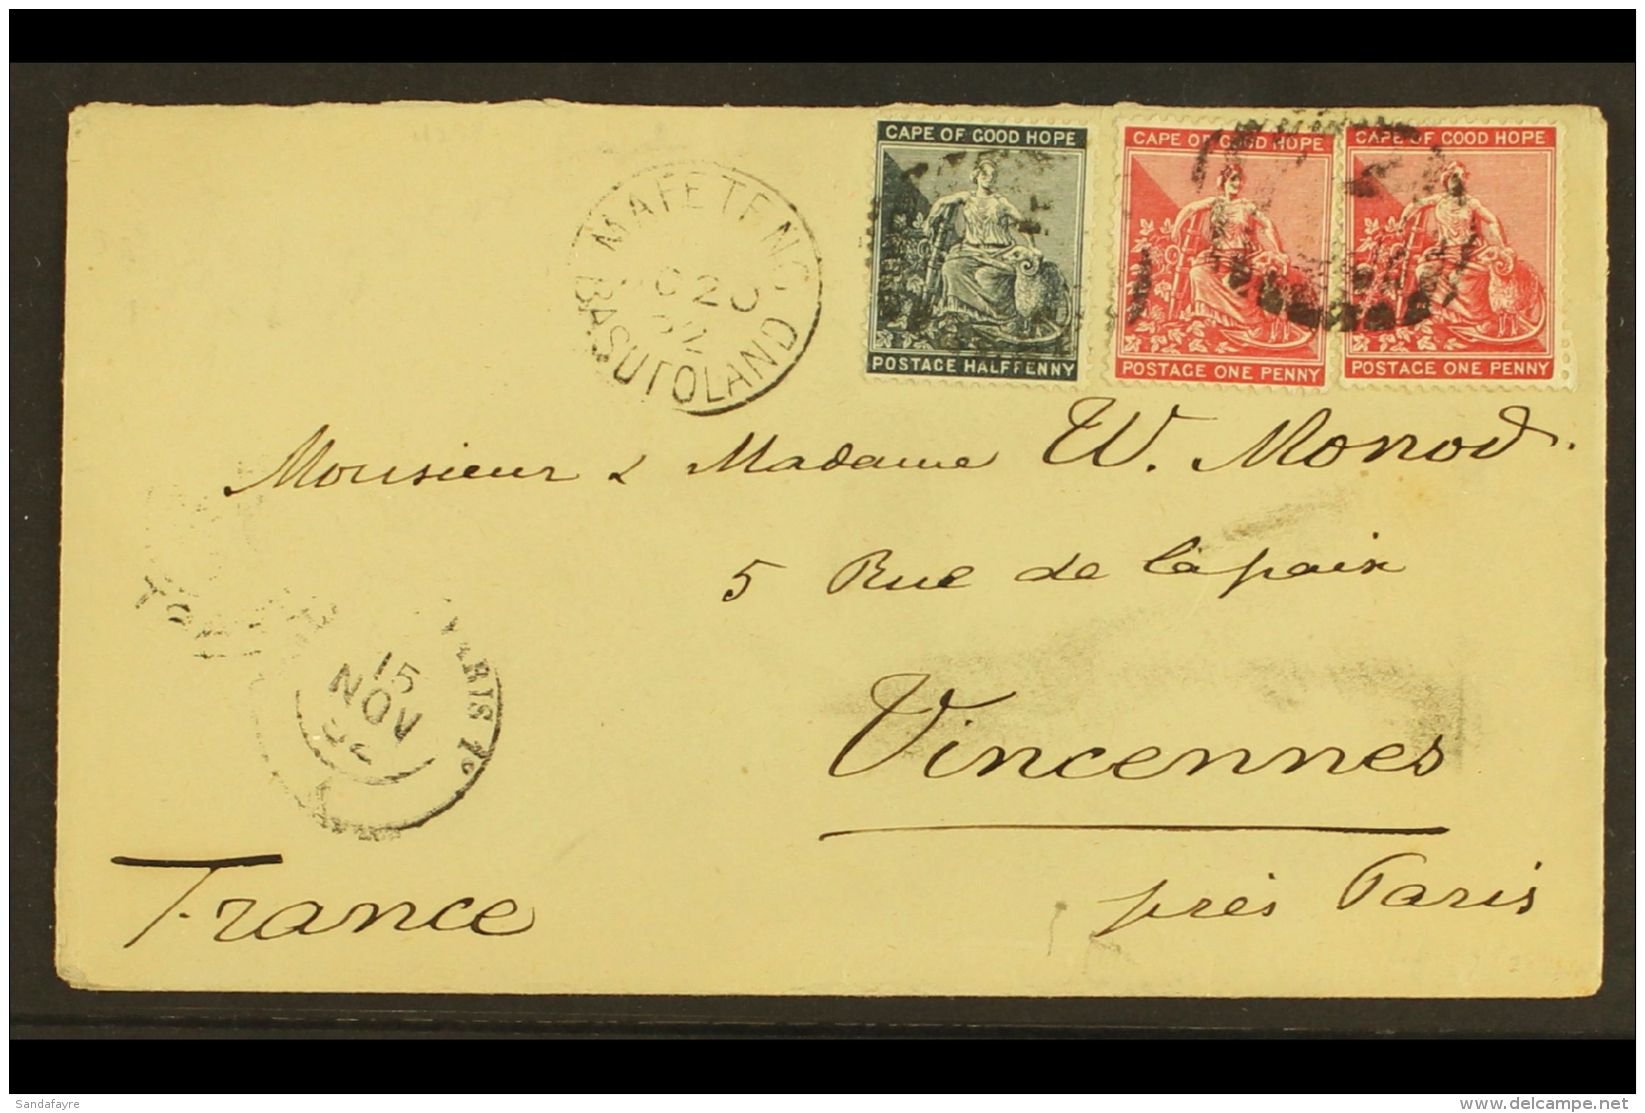 CAPE OF GOOD HOPE
POSTAGE HALFPENNY
CAPE OF GOOD HOPE
POSTAGE ONE PENNY
CAPE OF GOOD HOPE
POSTAGE ONE PENNY
MAFETENG
OC 20
92
BASUTOLAND
Monsieur & Madame W. Monod.
5 Rue de la paix
Vincennes
près Paris
France
PARIS
15
NOV
Sandafayre
delcampe.net